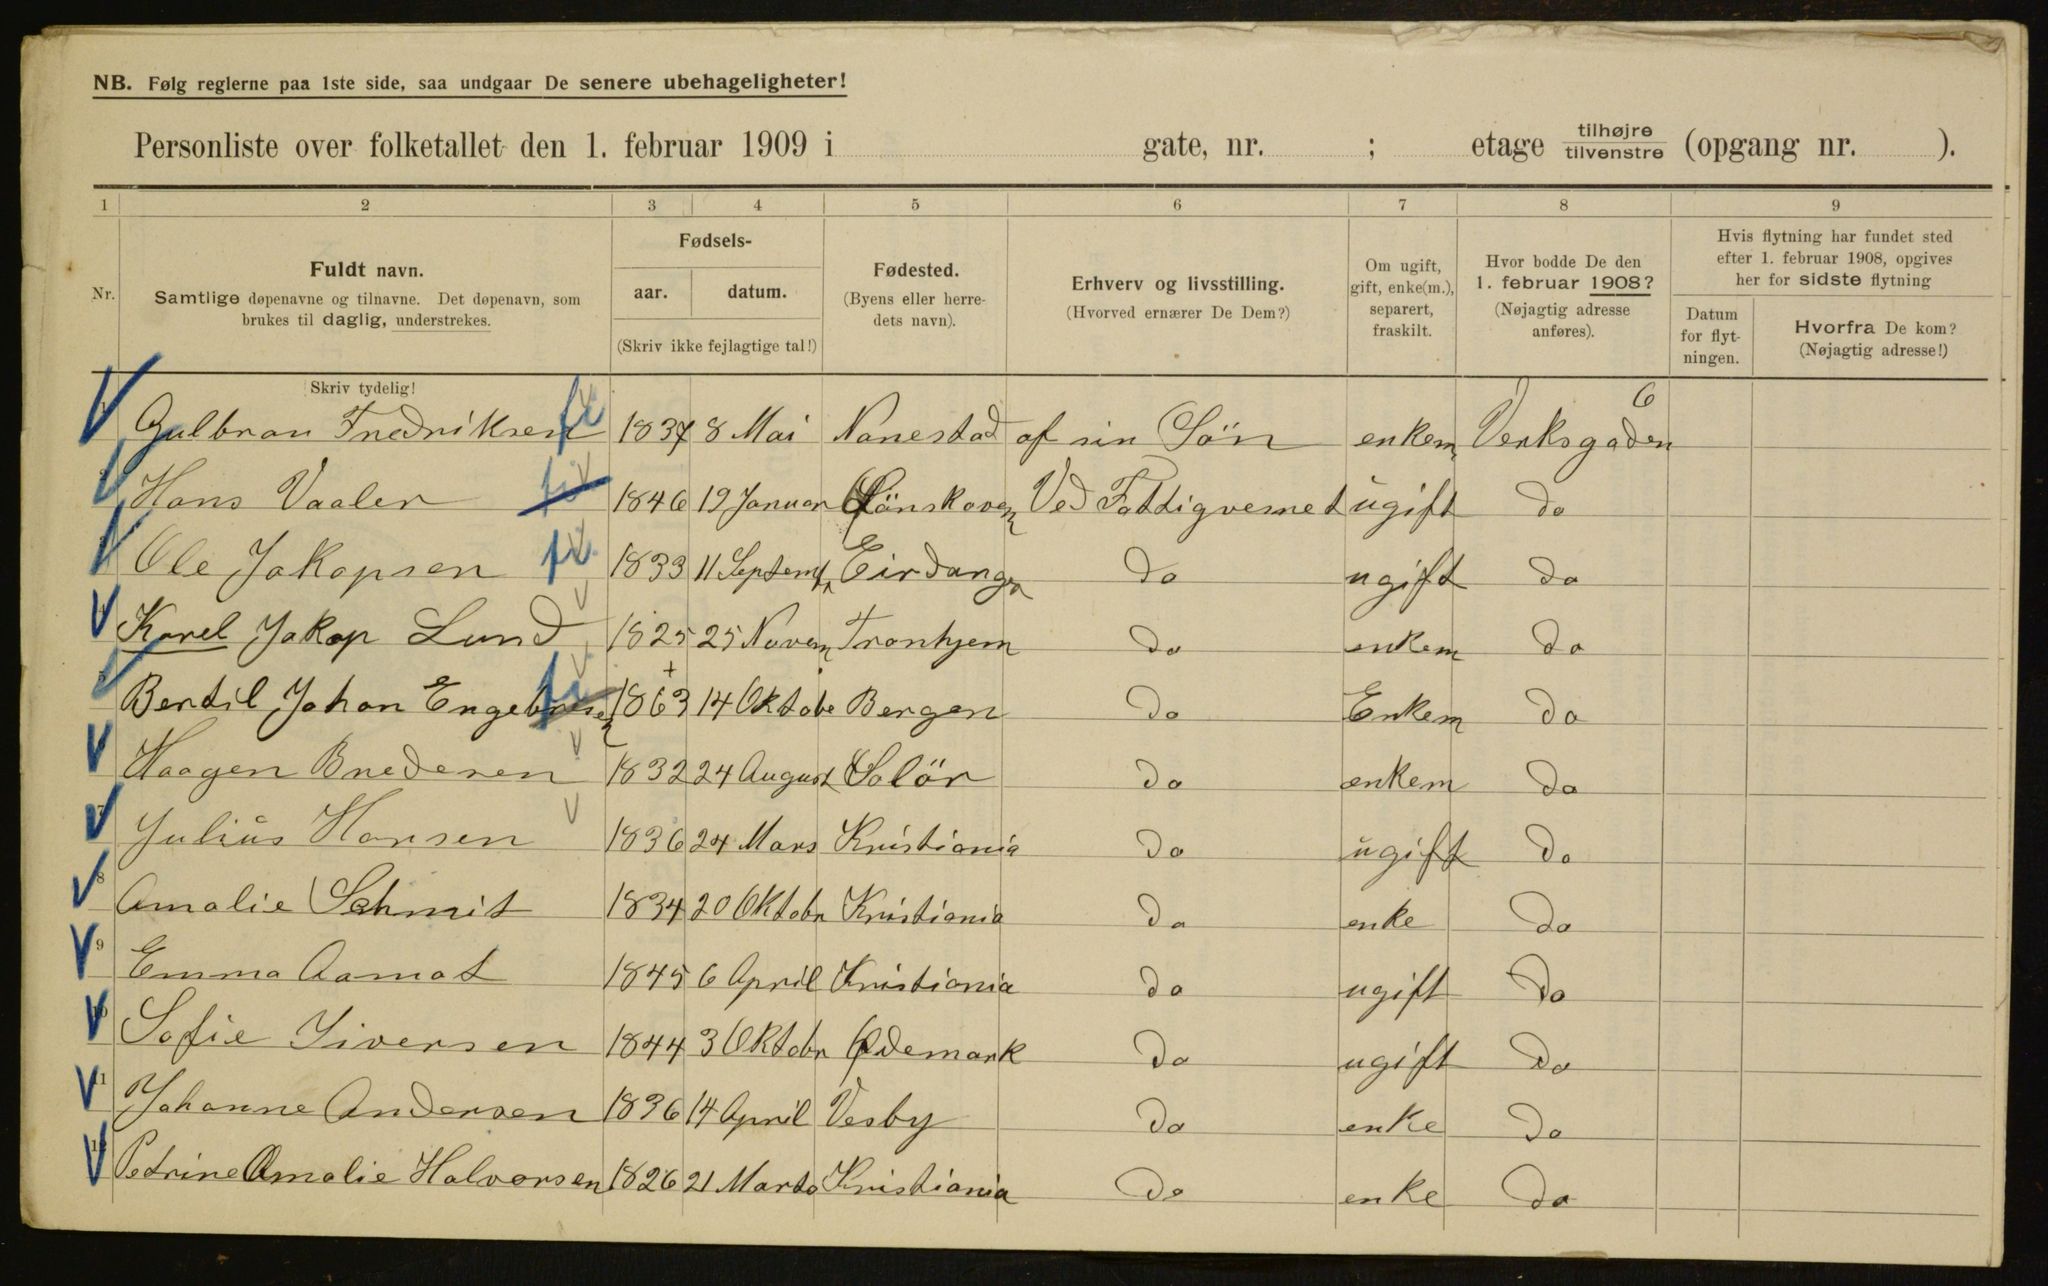 NB. Følg reglerne paa 1ste side, saa undgaar De senere ubehageligheter!
Personliste over folketallet den 1. februar 1909 i gate, nr. ; etage tilhøjre tilvenstre (opgang nr. ).
1 2 3 4 5 6 7 8 9
Nr.
Fuldt navn.
Samtlige døpenavne og tilnavne. Det døpenavn, som
brukes til daglig, understrekes.
Skriv tydelig!
Fødsels-
aar. datum.
(Skriv ikke fejlagtige tal!)
Fødested.
(Byens eller herre-
dets navn).
Erhverv og livsstilling.
(Hvorved ernærer De Dem?)
Om ugift,
gift, enke(m.),
separert,
fraskilt.
Hvor bodde De den
1. februar 1908?
(Nøjagtig adresse
anføres).
Hvis flytning har fundet sted
efter 1. februar 1908, opgives
her for sidste flytning
Datum
for flyt-
ningen.
Hvorfra De kom?
(Nøjagtig adresse!)
Gulbran Fredriksen fi 1837 8 Mai Nanestad af sin Søn enkem Verksgaden 6
Hans Vaaler 1846 19 Januar Lönskoven Ved Fattigvesnet ugift do
Ole Jakopsen fi 1833 11 Septembr Eirdanger do ugift do
Karel Jakop Lund 1825 25 Novem Tronhjem do enkem do
Bertil Johan Engebresen fi 1863 14 Oktobe Bergen do Enkem do
Haagen Bredesen 1832 24 August Solör do enkem do
7 Julius Hansen 1836 24 Mars Kristiania do ugift do
8 Amalie Schmit 1834 20 Oktobr Kristiania do enke do
9 Emma Aamot 1845 6 April Kristiania do ugift do
Sofie Siversen 1844 3 Oktobr Ødemark do ugift do
11 Johanne Andersen 1836 14 April Vesby do enke do
12 Petrine Amalie Halvorsen 1826 21 Marts Kristiania do enke do